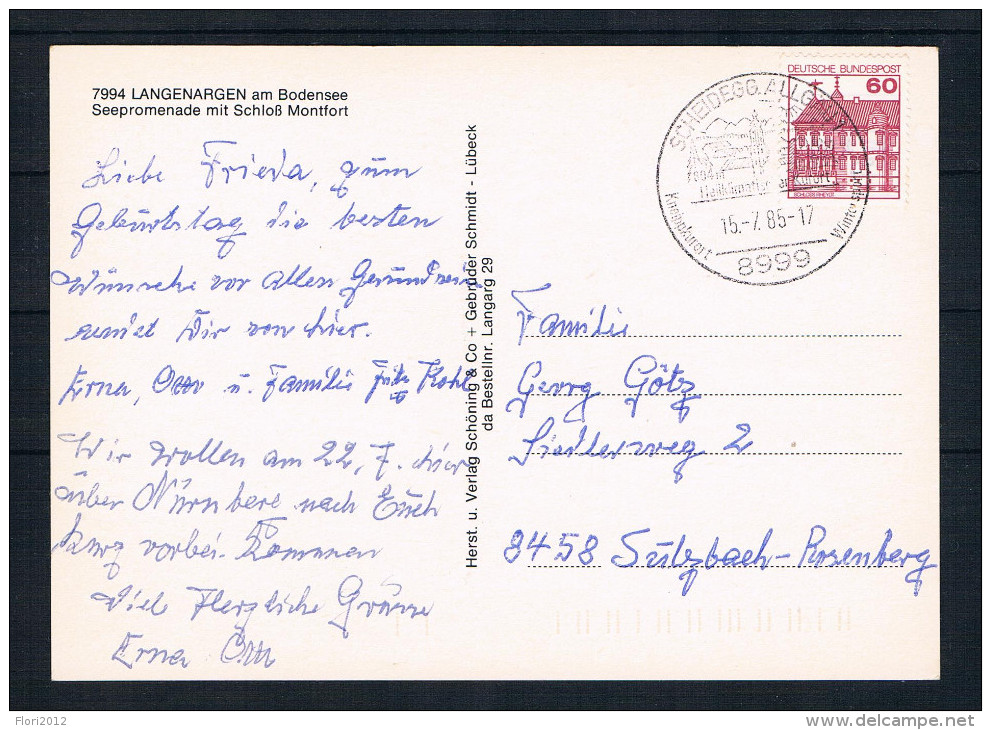 7994 LANGENARGEN am Bodensee
Seepromenade mit Schloß Montfort
Liebe Frieda, zum
Geburtstag die besten
Wünsche vor allen Gesundheit
sendet Dir von hier.
Erna, Otto u. Familie Fritz Kohl
Wir wollen am 22. 7. hier
über Nürnberg nach Euch
kurz vorbei kommen
Viel Herzliche Grüsse
Erna Otto
Herst. u. Verlag Schöning & Co + Gebrüder Schmidt - Lübeck
da Bestellnr. Langarg 29
DEUTSCHE BUNDESPOST
60
SCHLOSS RHEYDT
SCHEIDEGG, ALLGÄU
Heilklimatischer Kurort
Kneippkurort
Wintersport
15.-7.85-17
8999
Familie
Georg Götz
Siedlerweg 2
8458 Sulzbach-Rosenberg
Flori2012
www.delcampe.net